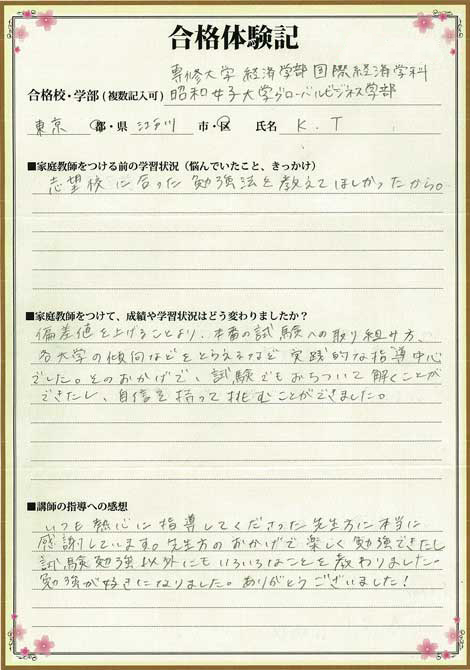 合格体験記
専修大学 経済学部 国際経済学科
合格校・学部(複数記入可) 昭和女子大学グローバルビジネス学部
東京 都・県 江戸川 市・区 氏名 K.T
■家庭教師をつける前の学習状況(悩んでいたこと、きっかけ)
志望校に合った勉強法を教えてほしかったから。
■家庭教師をつけて、成績や学習状況はどう変わりましたか?
偏差値を上げることより、本番の試験への取り組み方、
各大学の傾向などをとらえるなど実践的な指導中心
でした。そのおかげで、試験でもおちついて解くことが
できたし、自信を持って挑むことができました。
■講師の指導への感想
いつも熱心に指導してくださった先生方に本当に
感謝しています。先生方のおかげで楽しく勉強できたし
試験勉強以外にもいろいろなことを教わりました。
勉強が好きになりました。ありがとうございました!